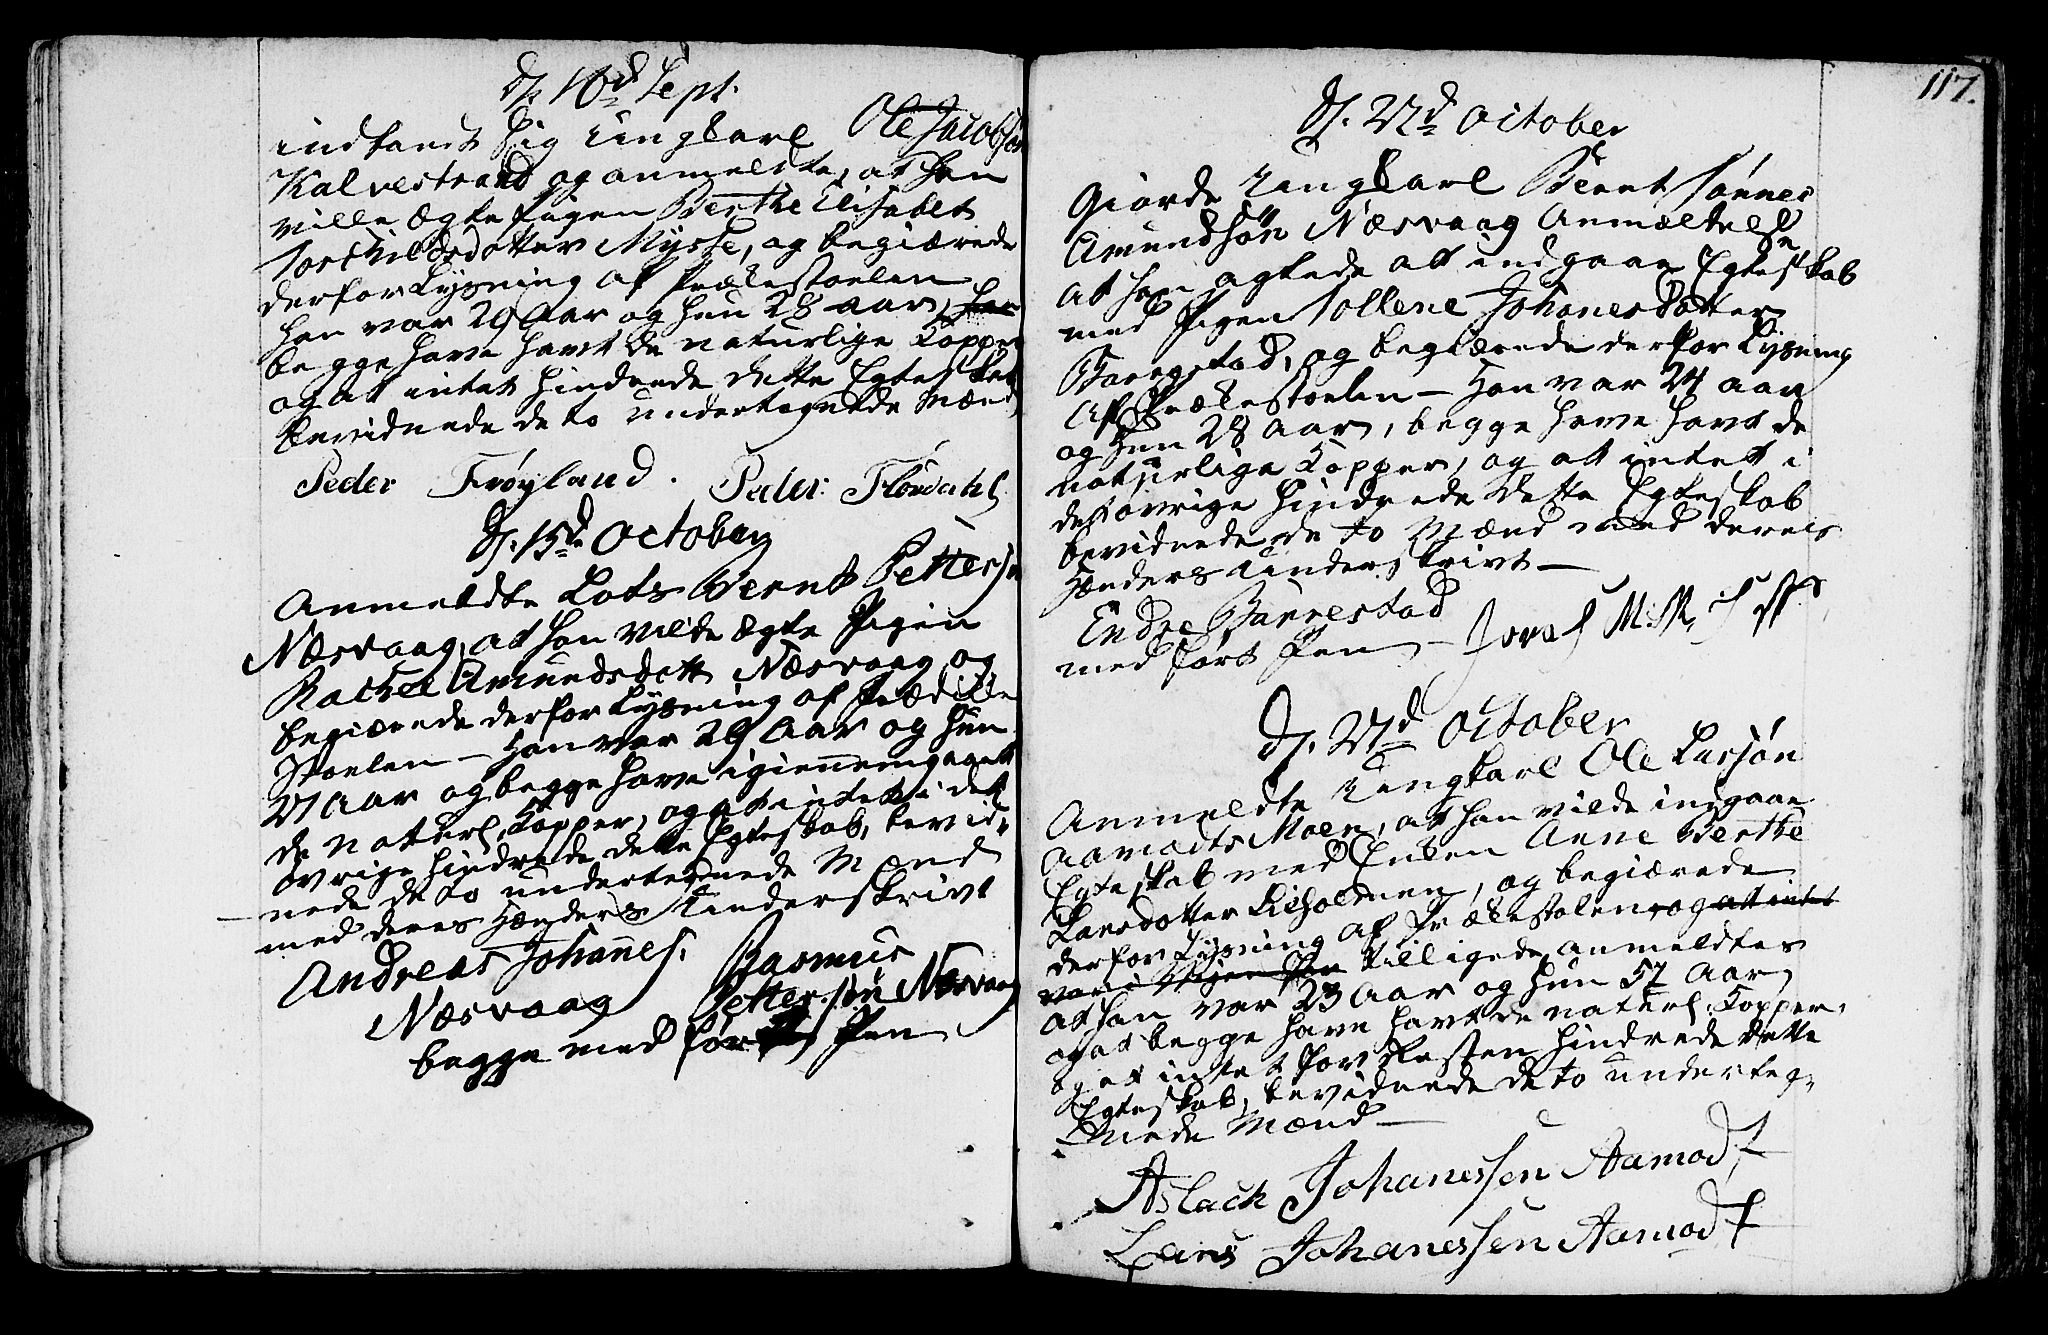 d. 10d Sept.
indfandt sig Ungkarl Ole Jacobsøn
Kalvestrand og anmeldte, at han
ville ægte Pigen Berthe Elisabet
Torckildsdotter Mysse, og begiærede
derfor Lysning af Prækestoelen
han var 29 Aar og hun 28 aar, han
begge have havt de naturlige Kopper
og at intet hindrede dette Egteskab
bevidnede de to undertegnede Mænd
Peder Frøyland. Peder Flørdahl
d. 15de October
Anmeldte Lots Bernt Petters.
Næsvaag, at han vilde ægte Pigen
Rachel Amundsdott Næsvaag og
begiærede derfor Lysning af Prædike
Stoelen – Han var 29 Aar og hun
27 Aar og begge have igiennemgaaet
de naturl. Kopper, og at intet i det
øvrige hindrede dette Egteskab, bevid-
nede de to undertegnede Mænd
med deres Hænders Underskrivt
Andreas Johannes. Rasmus
Næsvaag Pettersøn Næsvaag
begge med ført Pen
117.
d. 22d October
Giorde Ungkarl Bernt Tønnes
Amundsøn Næsvaag Anmældelse
at han agtede att indgaae Egteskab
med Pigen Tollene Johanesdotter
Barrestad, og begiærede derfor Lysning
af Prækestoelen – Han var 24 aar
og hun 28 Aar, begge have havt de
naturlige Kopper, og att intet i
det øvrige hindrede dette Egteskab
bevidnede de to Mænd med deres
Hænders Underskrivt –
Endre Barrestad
med ført Pen –
d. 27d October
Anmeldte Ungkarl Ole Larsøn
Aamodts Moen, at han vilde indgaae
Egteskab med Enken Anne Berthe
Larsdotter Lisholmen, og begiærede
derfor Lysning af Prækestolen, og att intet
var i Vejen Pen tilligede anmeldtes
at han var 23 Aar og hun 57 Aar
og at begge have havt de naturl. Kopper,
og at intet for Resten hindrede dette
Egteskab, bevidnede de to underteg-
nede Mænd –
Aslach Johanessen Aamodt
Lars Johanessen Aamodt